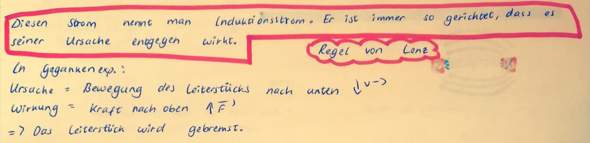 Diesen Strom nennt man Induktionsstrom. Er ist immer so gerichtet, dass es
seiner Ursache entgegen wirkt.
Regel von Lenz
In Gegankenexp.:
Ursache = Bewegung des Leiterstücks nach unten ↓v→
Wirkung = Kraft nach oben ↑F→
=> Das Leiterstück wird gebremst.